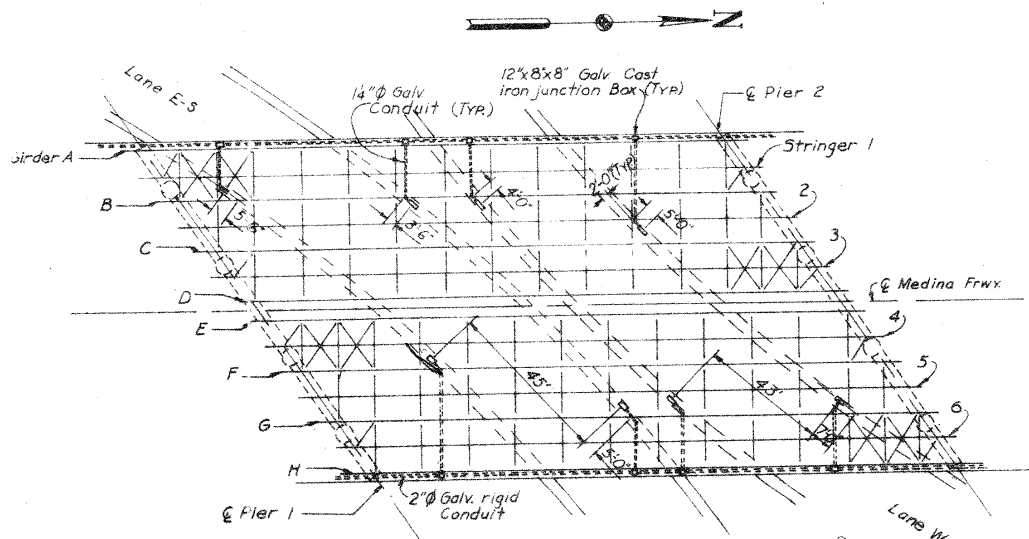 N
Lane E-S
1¼"Φ Galv.
Conduit (TYP.)
12"x8"x8" Galv Cast
iron junction Box (TYP.)
℄ Pier 2
Girder A
Stringer 1
B
2'-0"(Typ)
4'-0"
2
5'-8"
3'-6"
5'-0"
C
3
D
℄ Medina Frwy.
E
4
F
45'
43'
5
G
6
5'-0"
H
2"Φ Galv. rigid
Conduit
℄ Pier 1
Lane W